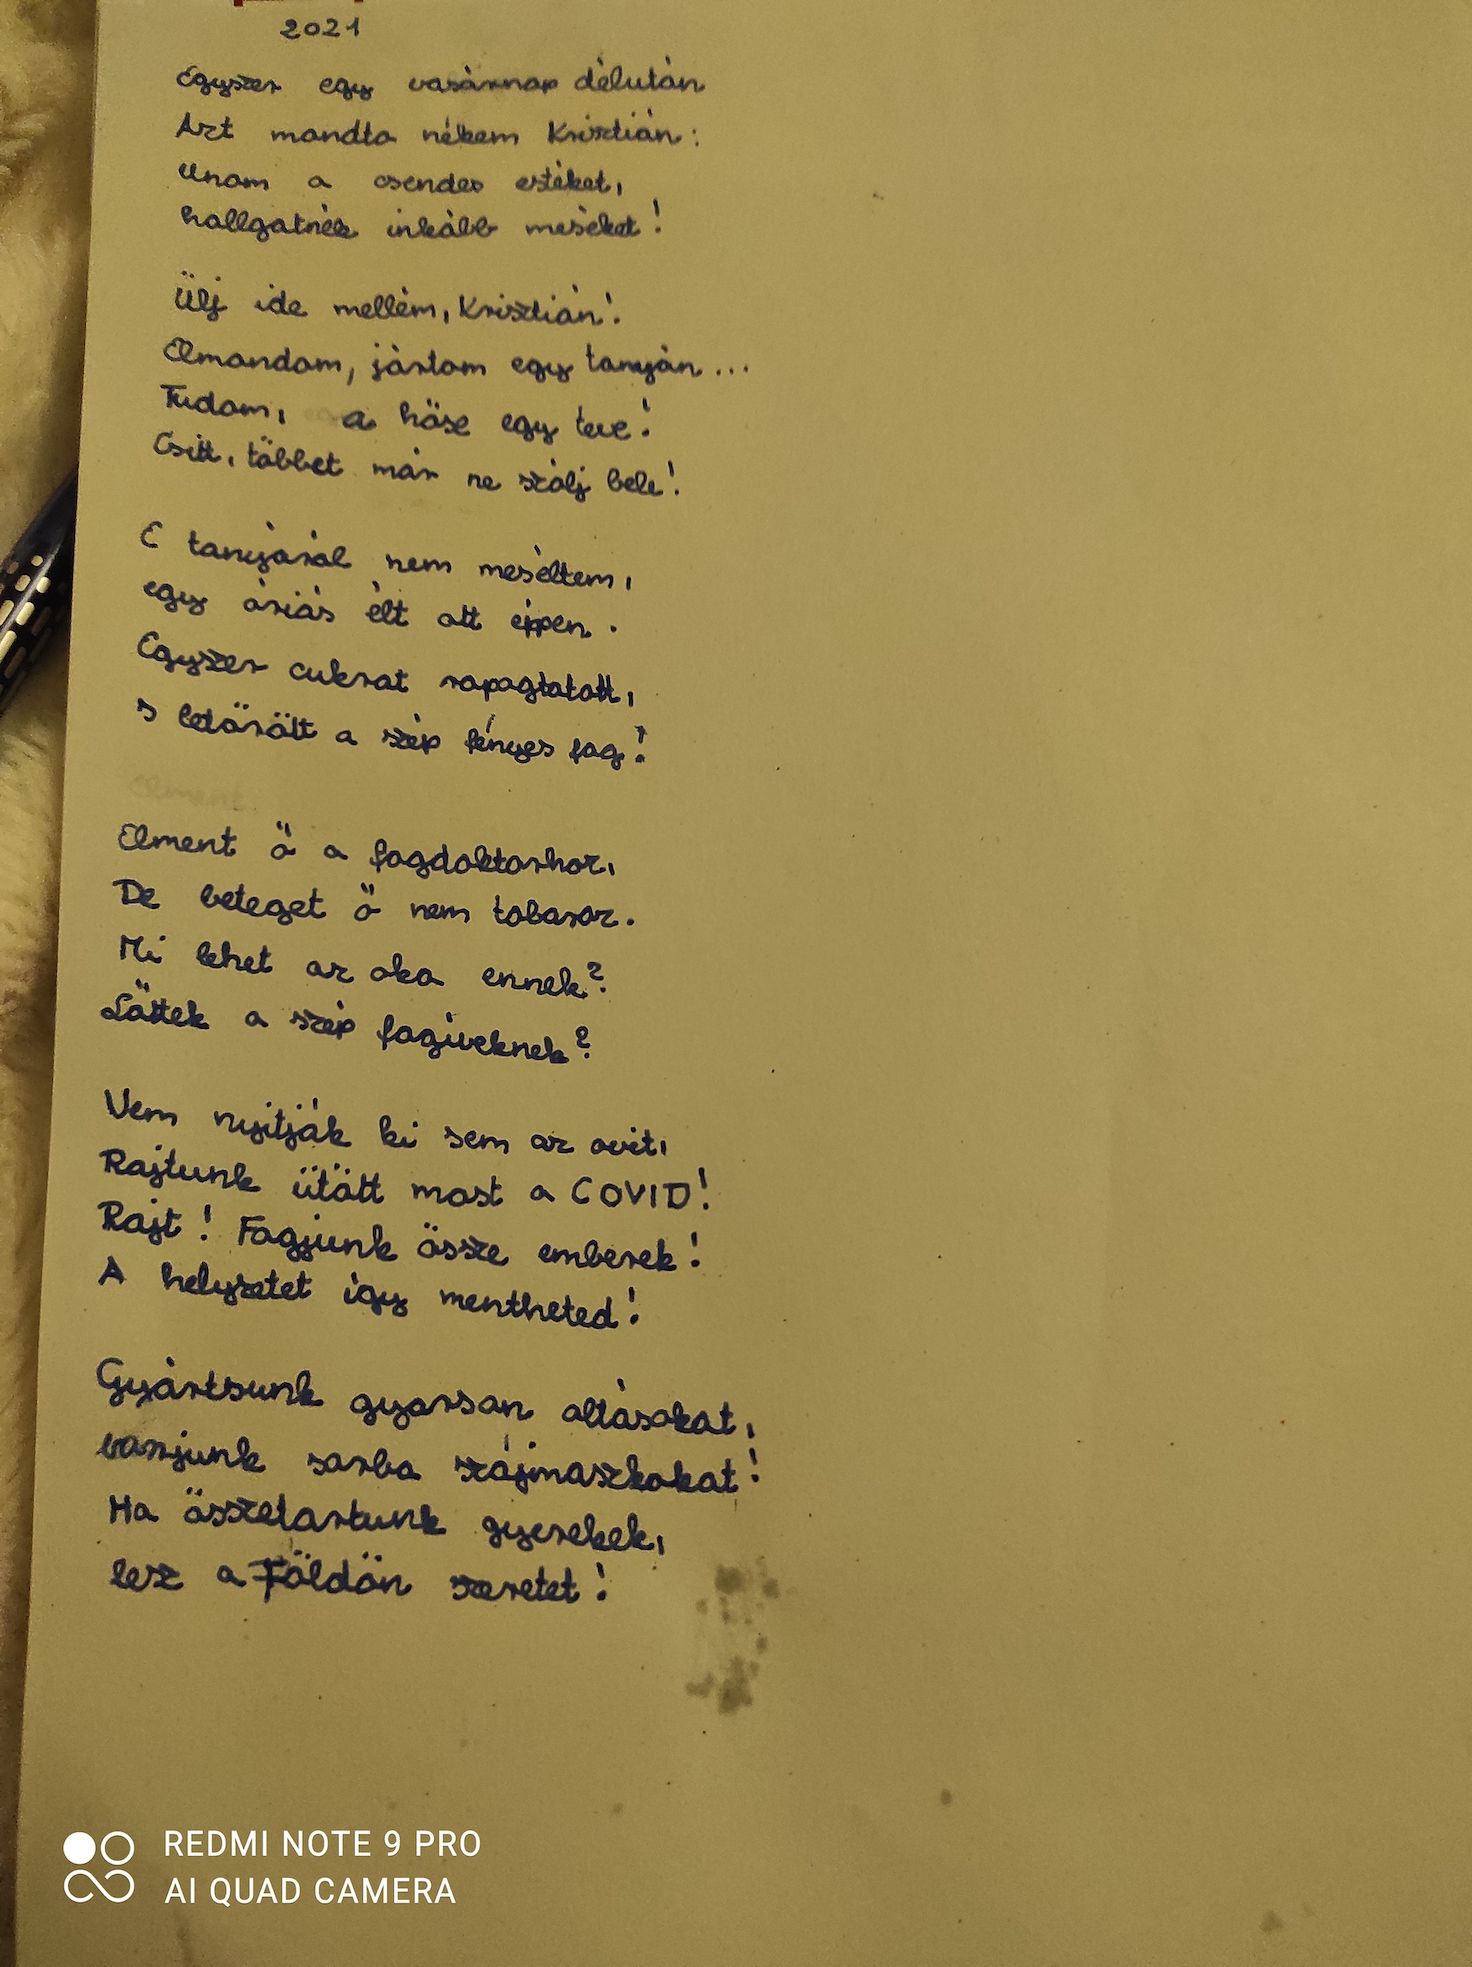 2021
Egyszer egy vasárnap délután
Azt mondta nékem Krisztián:
Unom a csendes estéket,
hallgatnék inkább meséket!
Ülj ide mellém, Krisztián!
Elmondom, jártam egy tanyán...
Tudom, a hőse egy teve!
Csitt, többet már ne szólj bele!
E tanyáról nem meséltem,
egy óriás élt ott éppen.
Egyszer cukrot ropogtatott,
s letörött a szép fényes fog!
Elment ő a fogdoktorhoz,
De beteget ő nem toboroz.
Mi lehet az oka ennek?
Lőttek a szép fogíveknek?
Nem nyitják ki sem az ovit,
Rajtunk ütött most a COVID!
Rajt! Fogjunk össze emberek!
A helyzetet így mentheted!
Gyártsunk gyorsan oltásokat,
varrjunk sorba szájmaszkokat!
Ha összetartunk gyerekek,
lesz a Földön szeretet!
REDMI NOTE 9 PRO
AI QUAD CAMERA